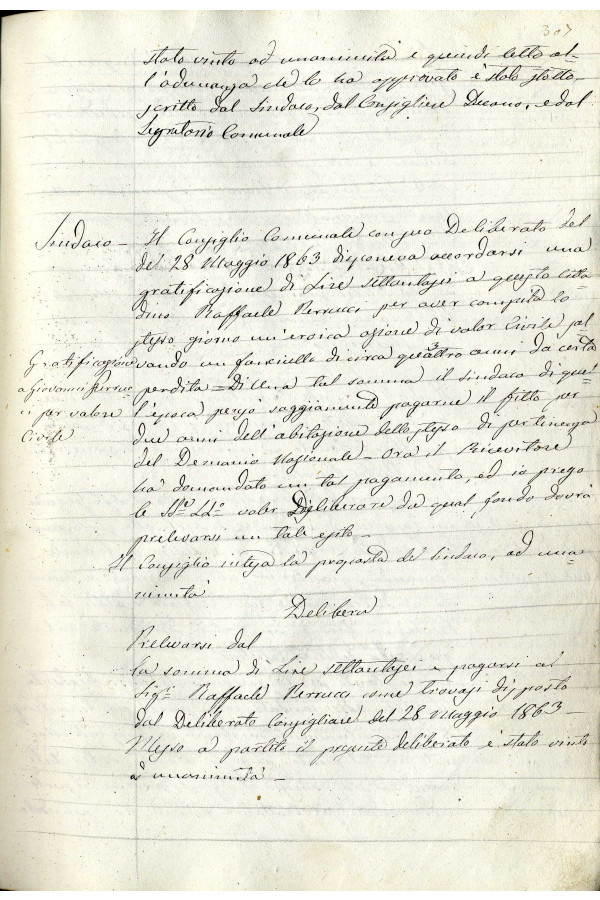 307
stato vinto ad unanimità e quindi letto al-
l'adunanza che lo ha approvato è stato sotto-
scritto dal Sindaco, dal Consigliere Decano, e dal
Segretario Comunale
Sindaco – Il Consiglio Comunale con suo Deliberato del
del 28 Maggio 1863 disponeva accordarsi una
gratificazione di Lire settantasei a questo citta
dino Raffaele Perrucci per aver compita lo
stesso giorno un'eroica azione di valor Civile sal
vando un fanciullo di circa quattro anni da certa
perdita = Di cena tal somma il Sindaco di quel
l'epoca pensò saggiamente pagarne il fitto per
due anni dell'abitazione dello stesso di pertinenza
del Demanio Nazionale – Ora il Ricevitore
ha domandato un tal pagamento, ed io prego
le deliberare da qual fondo dovrà
prelevarsi un tale esito –
Gratificazione
a Giovanni Perruc
ci per valore
Civile
Il Consiglio intesa la proposta del Sindaco, ad una-
nimità
Delibera
Prelevarsi dal
la somma di Lire settantasei e pagarsi al
Sigr Raffaele Perrucci come trovasi disposto
dal Deliberato Consigliare del 28 Maggio 1863 –
Messo a partito il presente deliberato è stato vinto
ad unanimità –